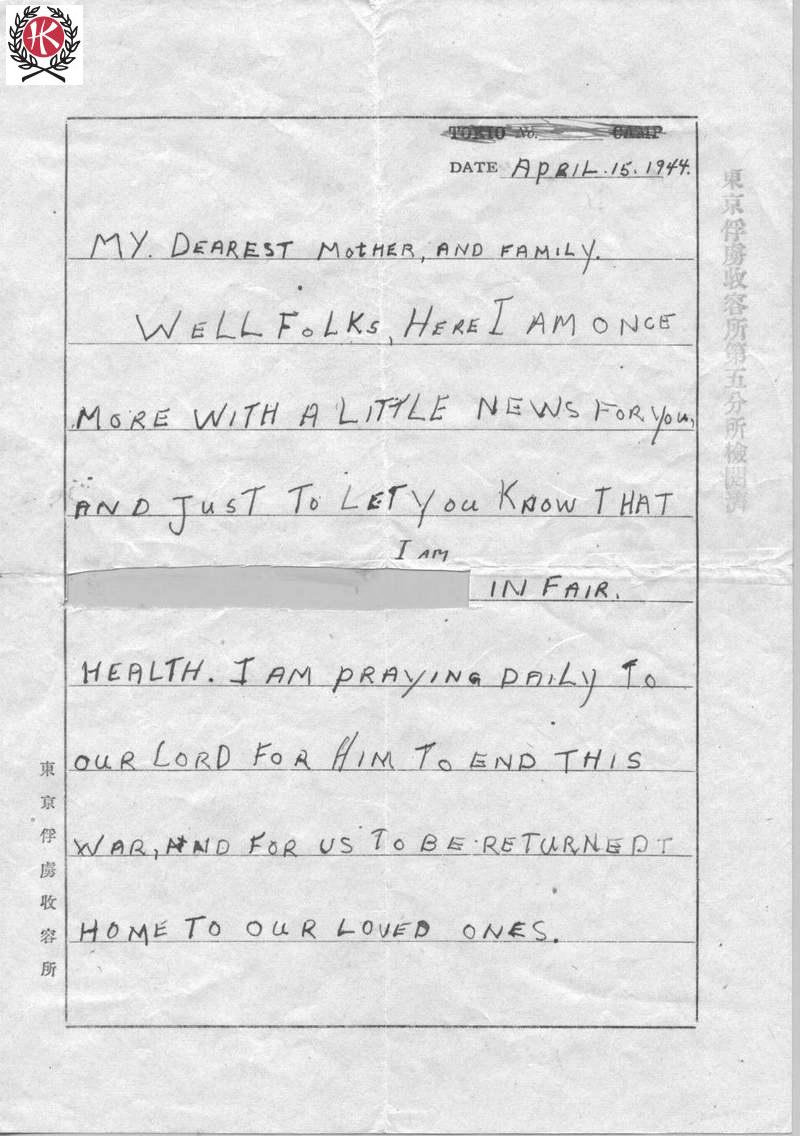 HK
TOKIO No. CAMP
DATE APRIL.15.1944.
MY. DEAREST MOTHER, AND FAMILY.
WELL FOLKS, HERE I AM ONCE
MORE WITH A LITTLE NEWS FOR YOU,
AND JUST TO LET YOU KNOW THAT
I AM
IN FAIR.
HEALTH. I AM PRAYING DAILY TO
OUR LORD FOR HIM TO END THIS
WAR, AND FOR US TO BE RETURNED T
HOME TO OUR LOVED ONES.
東京俘虜收容所第五分所檢閲濟
東京俘虜收容所